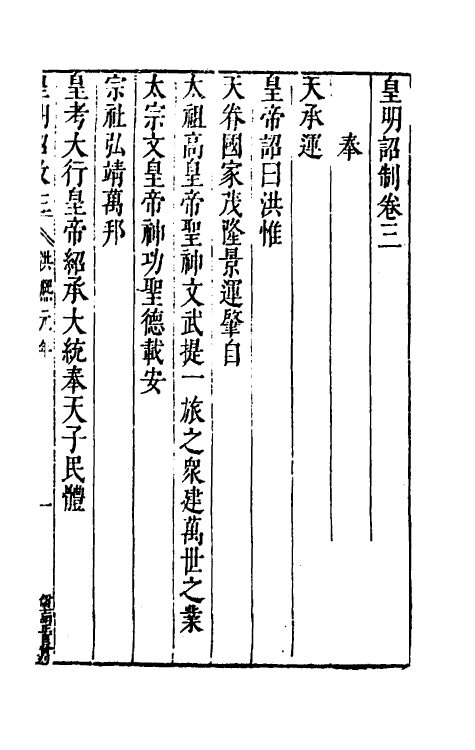 皇明詔制卷三
奉
天承運
皇帝詔曰洪惟
天眷國家茂隆景運肇自
太祖高皇帝聖神文武提一旅之衆建萬世之業
太宗文皇帝神功聖德載安
宗祉弘靖萬邦
皇考大行皇帝紹承大統奉天子民體
皇明詔攵三 洪熈元年 一